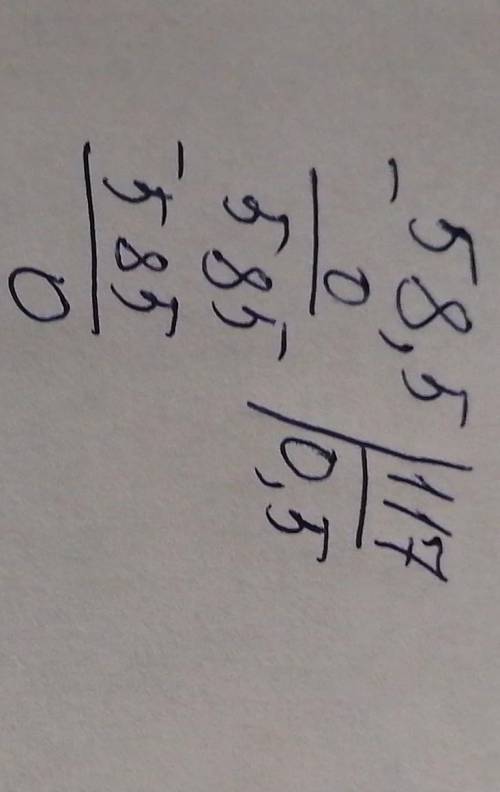 -58,5 | 117
0 | 0,5
585
-585
0